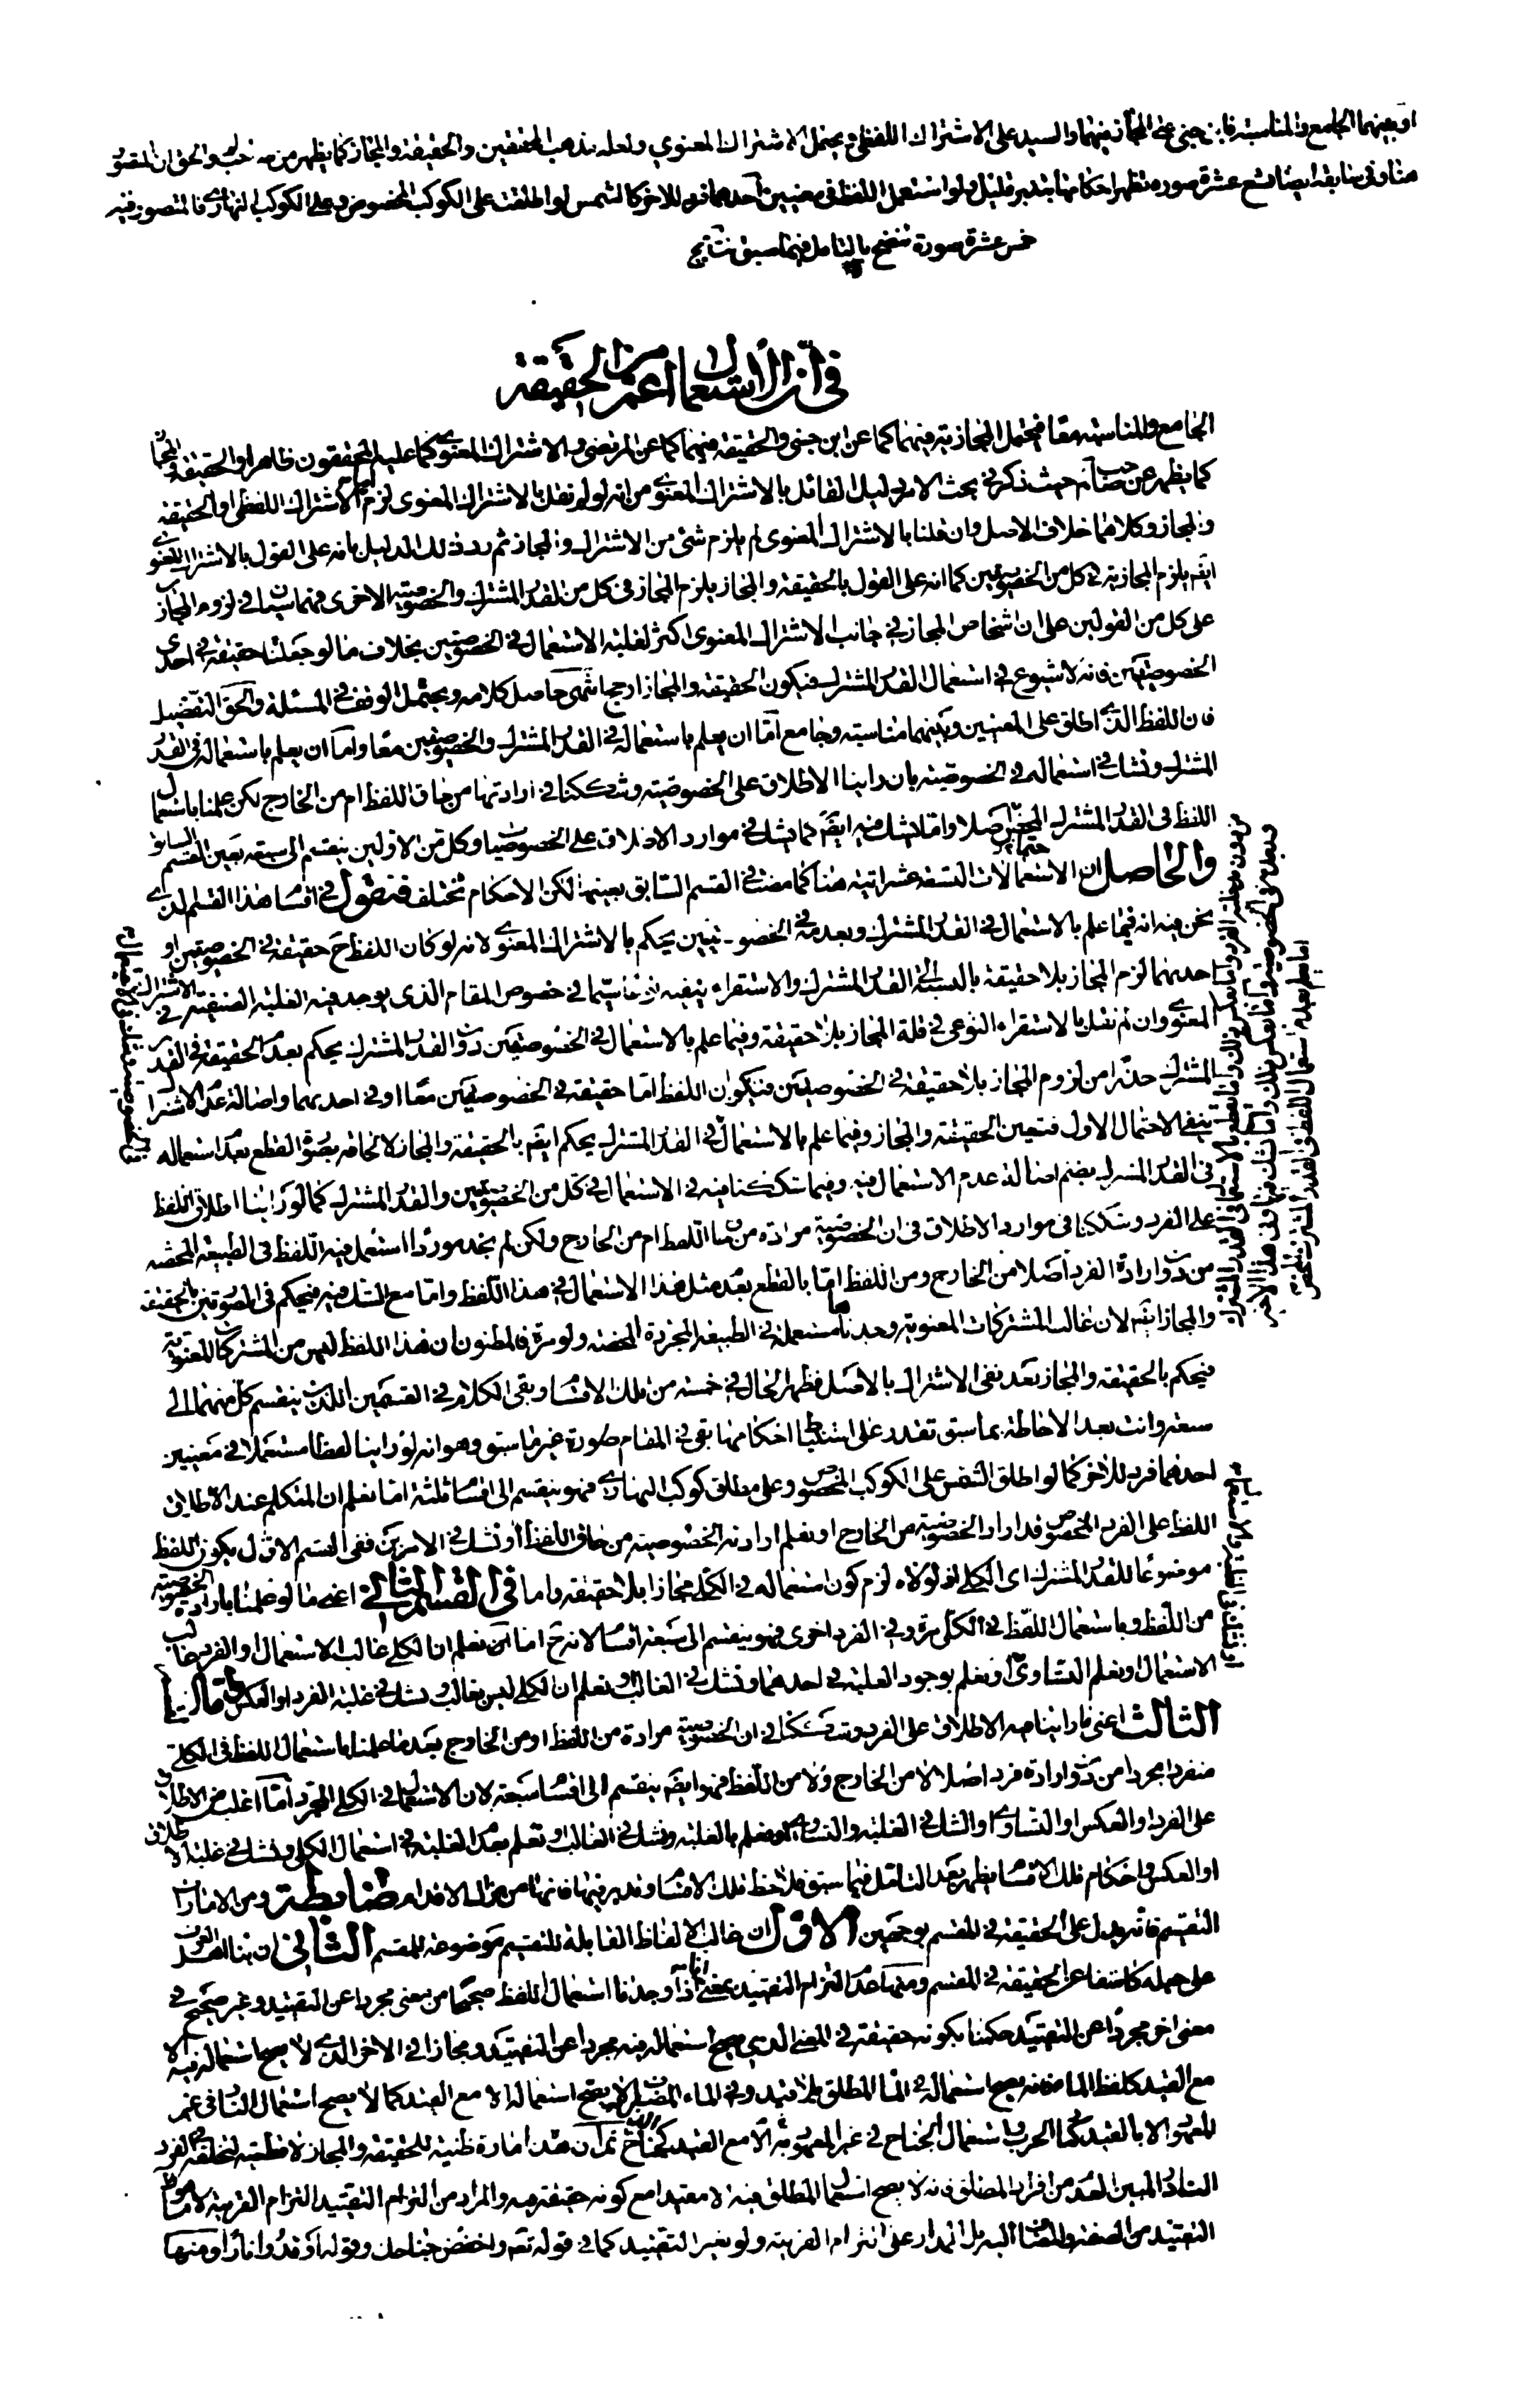 او بينهما الجامع والمناسبة فابن جنى على المجاز فيهما والسيد على الاشتراك اللفظى ويحتمل الاشتراك المعنوي ولعله مذهب المحققين والحقيقة والمجاز كما يظهر من والحق ان المتصور
هنا وفى سابقه ايضا تسع عشرة صورة تظهر احكامها بتدبر قليل ولو استعمل اللفظ فى معنيين احدهما فرد للاخر كالشمس لو اطلقت على الكوكب المخصوص وعلى الكوكب النهارى فالمتصور فيه
خمس عشرة صورة تتضح بالتامل فيما سبق نتايج
فى ان الاستعمال اعم من الحقيقة
الجامع والمناسبة معا فيحتمل المجازية فيهما كما عن ابن جنى والحقيقة فيهما كما عن المرتضى والاشتراك المعنوى كما عليه المحققون ظاهرا والحقيقة والمجاز
كما يظهر عن صاحب لم حيث ذكر فى بحث الامر دليل القائل بالاشتراك المعنوى من انه لو لم نقل بالاشتراك المعنوى لزم اما الاشتراك اللفظى او الحقيقة
والمجاز وكلاهما خلاف الاصل وان قلنا بالاشتراك المعنوى لم يلزم شئ من الاشتراك والمجاز ثم رد ذلك الدليل بانه على القول بالاشتراك المعنوى
ايضا يلزم المجازية فى كل من الخصوصيتين كما انه على القول بالحقيقة والمجاز يلزم المجاز فى كل من القدر المشترك والخصوصية الاخرى فهما سيان فى لزوم المجاز
على كل من القولين على ان اشخاص المجاز فى جانب الاشتراك المعنوى اكثر لغلبة الاستعمال فى الخصوصيتين بخلاف ما لو جعلنا حقيقة فى احدى
الخصوصيتين فانه لا شيوع فى استعمال القدر المشترك فيكون الحقيقة والمجاز ارجح انتهى حاصل كلامه ويحتمل الوقف فى المسئلة والحق التفصيل
فان اللفظ الذى اطلق على المعنيين وبينهما مناسبة وجامع اما ان يعلم باستعماله فى القدر المشترك والخصوصيتين معا واما ان يعلم باستعماله فى القدر
المشترك ونشك فى استعماله فى الخصوصية بان راينا الاطلاق على الخصوصية وشككنا فى ارادتها من حاق اللفظ ام من الخارج لكن علمنا باستعمال
اللفظ فى القدر المشترك اصلا واما لا نشك فيه ايضا كما نشك فى موارد الاطلاق على الخصوصيات وكل من الاولين ينقسم الى سبعة بعين القسم السابق
والحاصل ان الاستعمالات التسعة عشر اتية هنا كما مضت فى القسم السابق بعينها لكن الاحكام تختلف فنقول فى اقسام هذا القسم الذى
نحن فيه انه فيما علم بالاستعمال فى القدر المشترك وبعدمه فى الخصوصيتين يحكم بالاشتراك المعنوى لانه لو كان اللفظ ح حقيقة فى الخصوصيتين او
احديهما لزم المجاز بلا حقيقة بالنسبة الى القدر المشترك والاستقراء ينفيه سيما فى خصوص المقام الذى يوجد فيه الغلبة الصنفية فى الاشتراك
المعنوى وان لم نقل بالاستقراء النوعى فى قلة المجاز بلا حقيقة وفيما علم بالاستعمال فى الخصوصيتين دون القدر المشترك يحكم بعدم الحقيقة فى القدر
المشترك حذرا من لزوم المجاز بلا حقيقة فى الخصوصيتين فيكون اللفظ اما حقيقة فى الخصوصيتين معا او فى احديهما واصالة عدم الاشتراك
ينفى الاحتمال الاول فتعين الحقيقة والمجاز وفيما علم بالاستعمال فى القدر المشترك يحكم ايضا بالحقيقة والمجاز لالحاقه بصورة القطع بعدم استعماله
فى القدر المشترك بضم اصالة عدم الاستعمال فيه وفيما شككنا فيه فى الاستعمال فى كل من الخصوصيتين والقدر المشترك كما لو راينا اطلاق اللفظ
على الفرد وشككنا فى موارد الاطلاق فى ان الخصوصية مرادة من اللفظ ام من الخارج ولكن لم نجد موردا استعمل فيه اللفظ فى الطبيعة المحضة
من دون ارادة الفرد اصلا من الخارج ومن اللفظ اما بالقطع بعدم مثل هذا الاستعمال فى هذا اللفظ واما مع الشك فيه فيحكم فى الصورتين بالحقيقة
والمجاز ايضا لان غالب المشتركات المعنوية وجدناها مستعملة فى الطبيعة المجردة المحضة ولو مرة فالمظنون ان هذا اللفظ ليس من المشتركات المعنوية
فيحكم بالحقيقة والمجاز بعد نفى الاشتراك بالاصل فظهر الحال فى خمسة من تلك الاقسام وبقى الكلام فى القسمين اللذين ينقسم كل منهما الى
سبعة وانت بعد الاحاطة بما سبق تقدر على استنباط احكامها بقى فى المقام صورة غير ما سبق وهو انه لو راينا لفظا مستعملا فى معنيين
احدهما فرد للاخر كما لو اطلق الشمس على الكوكب المخصوص وعلى مطلق كوكب النهارى فهو ينقسم الى اقسام ثلثة اما نعلم ان المتكلم عند الاطلاق
اللفظ على الفرد المخصوص قد اراد الخصوصية من الخارج او نعلم ارادته الخصوصية من حاق اللفظ او نشك فى الامرين ففى القسم الاول يكون اللفظ
موضوعا للقدر المشترك اى الكلى اذ لولاه لزم كون استعماله فى الكلى مجازا بلا حقيقة واما فى القسم الثانى اعنى ما لو علمنا بارادة الخصوصية
من اللفظ وباستعمال اللفظ فى الكلى مرة وفى الفرد اخرى فهو ينقسم الى سبعة اقسام لانه ح اما ان نعلم ان الكلى غالب الاستعمال او الفرد غالب
الاستعمال او نعلم التساوى او نعلم بوجود الغلبة فى احدهما ونشك فى الغالب او نعلم ان الكلى ليس بغالب ونشك فى غلبة الفرد او العكس
الثالث اعنى ما راينا فيه الاطلاق على الفرد وشككنا فى ان الخصوصية مرادة من اللفظ او من الخارج بعد ما علمنا باستعمال اللفظ فى الكلى
منفردا مجردا من دون ارادة فرد اصلا لا من الخارج ولا من اللفظ فهو ايضا ينقسم الى اقسام سبعة لان الاستعمال فى الكلى المجرد اما اغلب من الاطلاق
على الفرد او العكس او التساوى او الشك فى الغلبة والتساوى او نعلم بالغلبة ونشك فى الغالب او نعلم بعدم الغلبة فى استعمال الكلى ونشك فى غلبة الاطلاق
او العكس واحكام تلك الاقسام يظهر بعد التامل فيما سبق فلاحظ تلك الاقسام وتدبر فيها فانها من مزال الاقدام ضابطة ومن الامارات
التقسيم فانه يدل على الحقيقة فى المقسم بوجهين الاول ان غالب الالفاظ القابلة للتقسيم موضوعة للمقسم الثانى ان بناء العرف
على جعله كاشفا عن الحقيقة فى المقسم ومنها عدم التزام التقييد بمعنى انا اذا وجدنا استعمال اللفظ صحيحا من معنى مجردا عن التقييد وغير صحيح فى
معنى اخر مجردا عن التقييد حكمنا بكونه حقيقة فى المعنى الذى صح استعماله فيه مجردا عن التقييد ومجازا فى الاخر الذى لا يصح استعماله فيه الا
مع القيد كلفظ الماء فانه يصح استعماله فى الماء المطلق بلا قيد وفى الماء المضاف لا يصح استعماله الا مع القيد كما لا يصح استعمال النار فى غير
المعهود الا بالقيد كنار الحرب واستعمال الجناح فى غير المعهود الا مع القيد كجناح الذل ثم ان هذا امارة ظنية للحقيقة والمجاز لا قطعية لتخلفه فى الفرد
النادر المبين العدم من افراد المطلق فانه لا يصح استعمال المطلق فيه الا مقيدا مع كونه حقيقة فيه والمراد من التزام التقييد التزام القرينة لا
التقييد من الصفة والمضاف اليه بل المدار على التزام القرينة ولو بغير التقييد كما فى قوله تعالى واخفض جناحك وقوله اوقدوا نارا ومنها